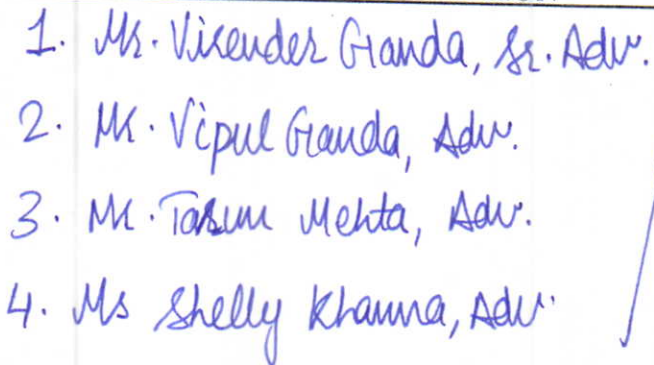 1. Mr. Virender Ganda, Sr. Adv.
2. Mr. Vipul Ganda, Adv.
3. Mr. Tarun Mehta, Adv.
4. Ms Shelly Khanna, Adv.